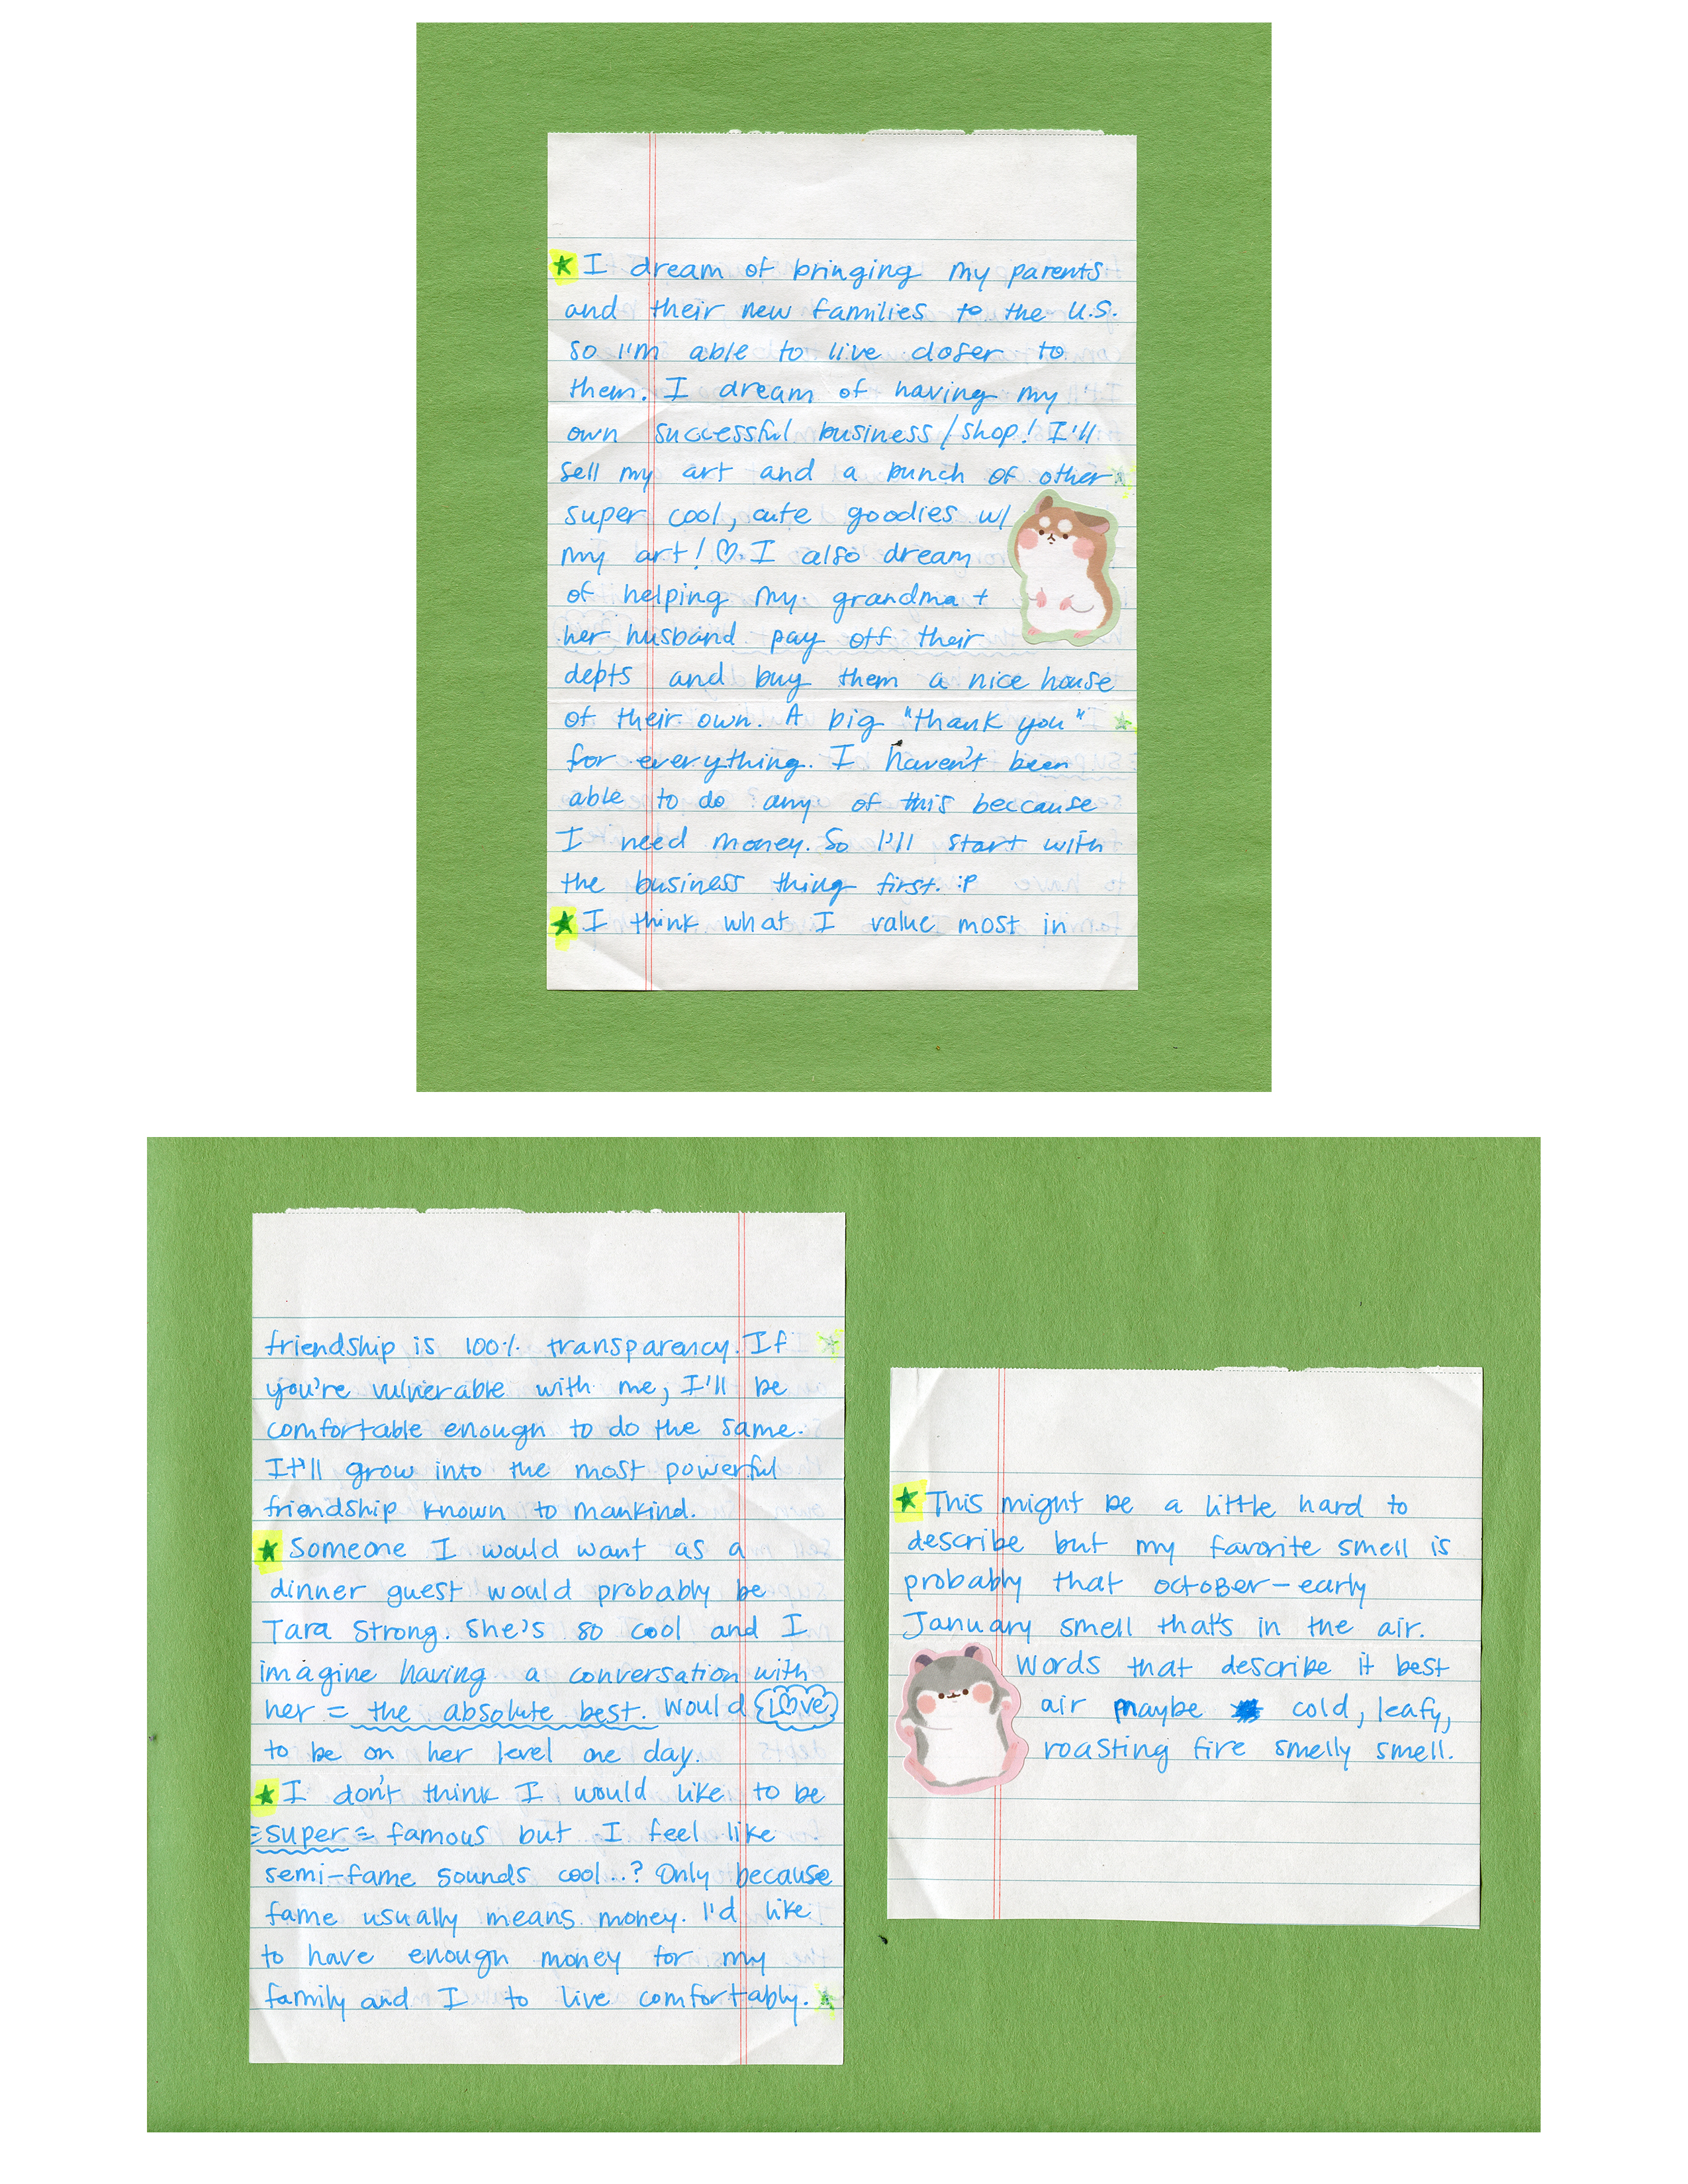 ★ I dream of bringing my parents
and their new families to the U.S.
so I'm able to live closer to
them. I dream of having my
own successful business/shop! I'll
sell my art and a bunch of other
super cool, cute goodies w/
my art! ♡ I also dream
of helping my grandma +
her husband pay off their
depts and buy them a nice house
of their own. A big "thank you"
for everything. I haven't been
able to do any of this beccause
I need money. So I'll start with
the business thing first. :P
★ I think what I value most in
friendship is 100% transparency. If
you're vulnerable with me, I'll be
comfortable enough to do the same.
It'll grow into the most powerful
friendship known to mankind.
★ Someone I would want as a
dinner guest would probably be
Tara Strong. She's so cool and I
imagine having a conversation with
her = the absolute best. Would love
to be on her level one day.
★ I don't think I would like to be
super famous but I feel like
semi-fame sounds cool..? Only because
fame usually means money. I'd like
to have enough money for my
family and I to live comfortably.
★ This might be a little hard to
describe but my favorite smell is
probably that october-early
January smell that's in the air.
Words that describe it best
air maybe cold, leafy,
roasting fire smelly smell.